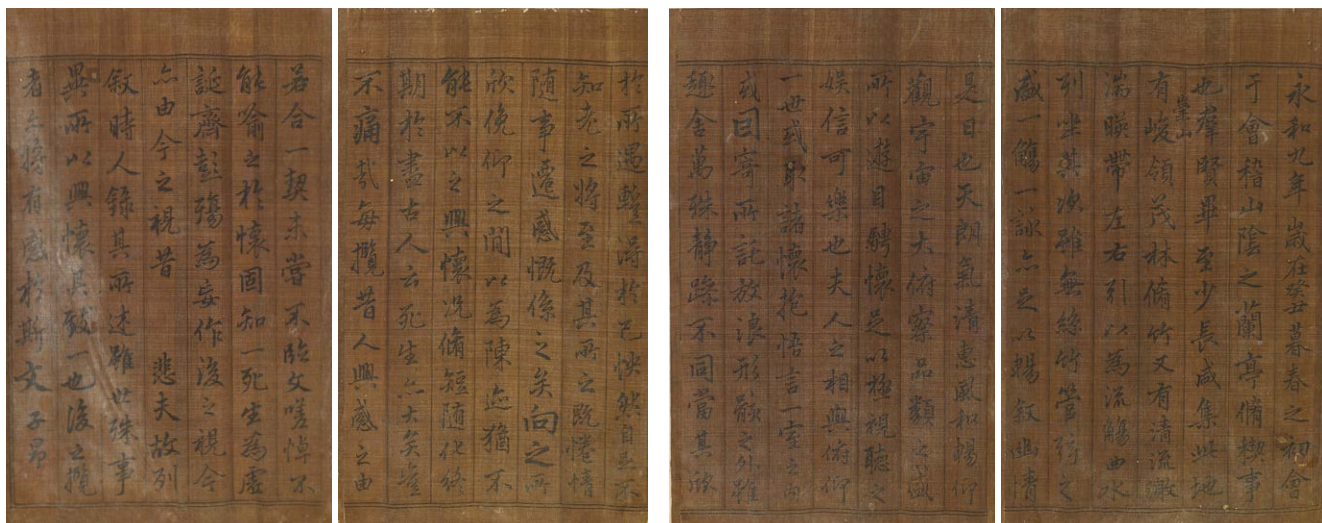 永和九年歲在癸丑暮春之初會
于會稽山陰之蘭亭脩稧事
也羣賢畢至少長咸集此地
崇山
有峻領茂林脩竹又有清流激
湍暎帶左右引以為流觴曲水
列坐其次雖無絲竹管弦之
盛一觴一詠亦足以暢敘幽情
是日也天朗氣清惠風和暢仰
觀宇宙之大俯察品類之盛
所以遊目騁懷足以極視聽之
娛信可樂也夫人之相與俯仰
一世或取諸懷抱悟言一室之內
或因寄所託放浪形骸之外雖
趣舍萬殊靜躁不同當其欣
於所遇蹔得於己怏然自足不
知老之將至及其所之既惓情
隨事遷感慨係之矣向之所
欣俛仰之閒以為陳迹猶不
能不以之興懷況脩短隨化終
期於盡古人云死生亦大矣豈
不痛哉每攬昔人興感之由
若合一契未嘗不臨文嗟悼不
能喻之於懷固知一死生為虛
誕齊彭殤為妄作後之視今
亦由今之視昔 悲夫故列
敘時人錄其所述雖世殊事
異所以興懷其致一也後之攬
者亦將有感於斯文 子昂